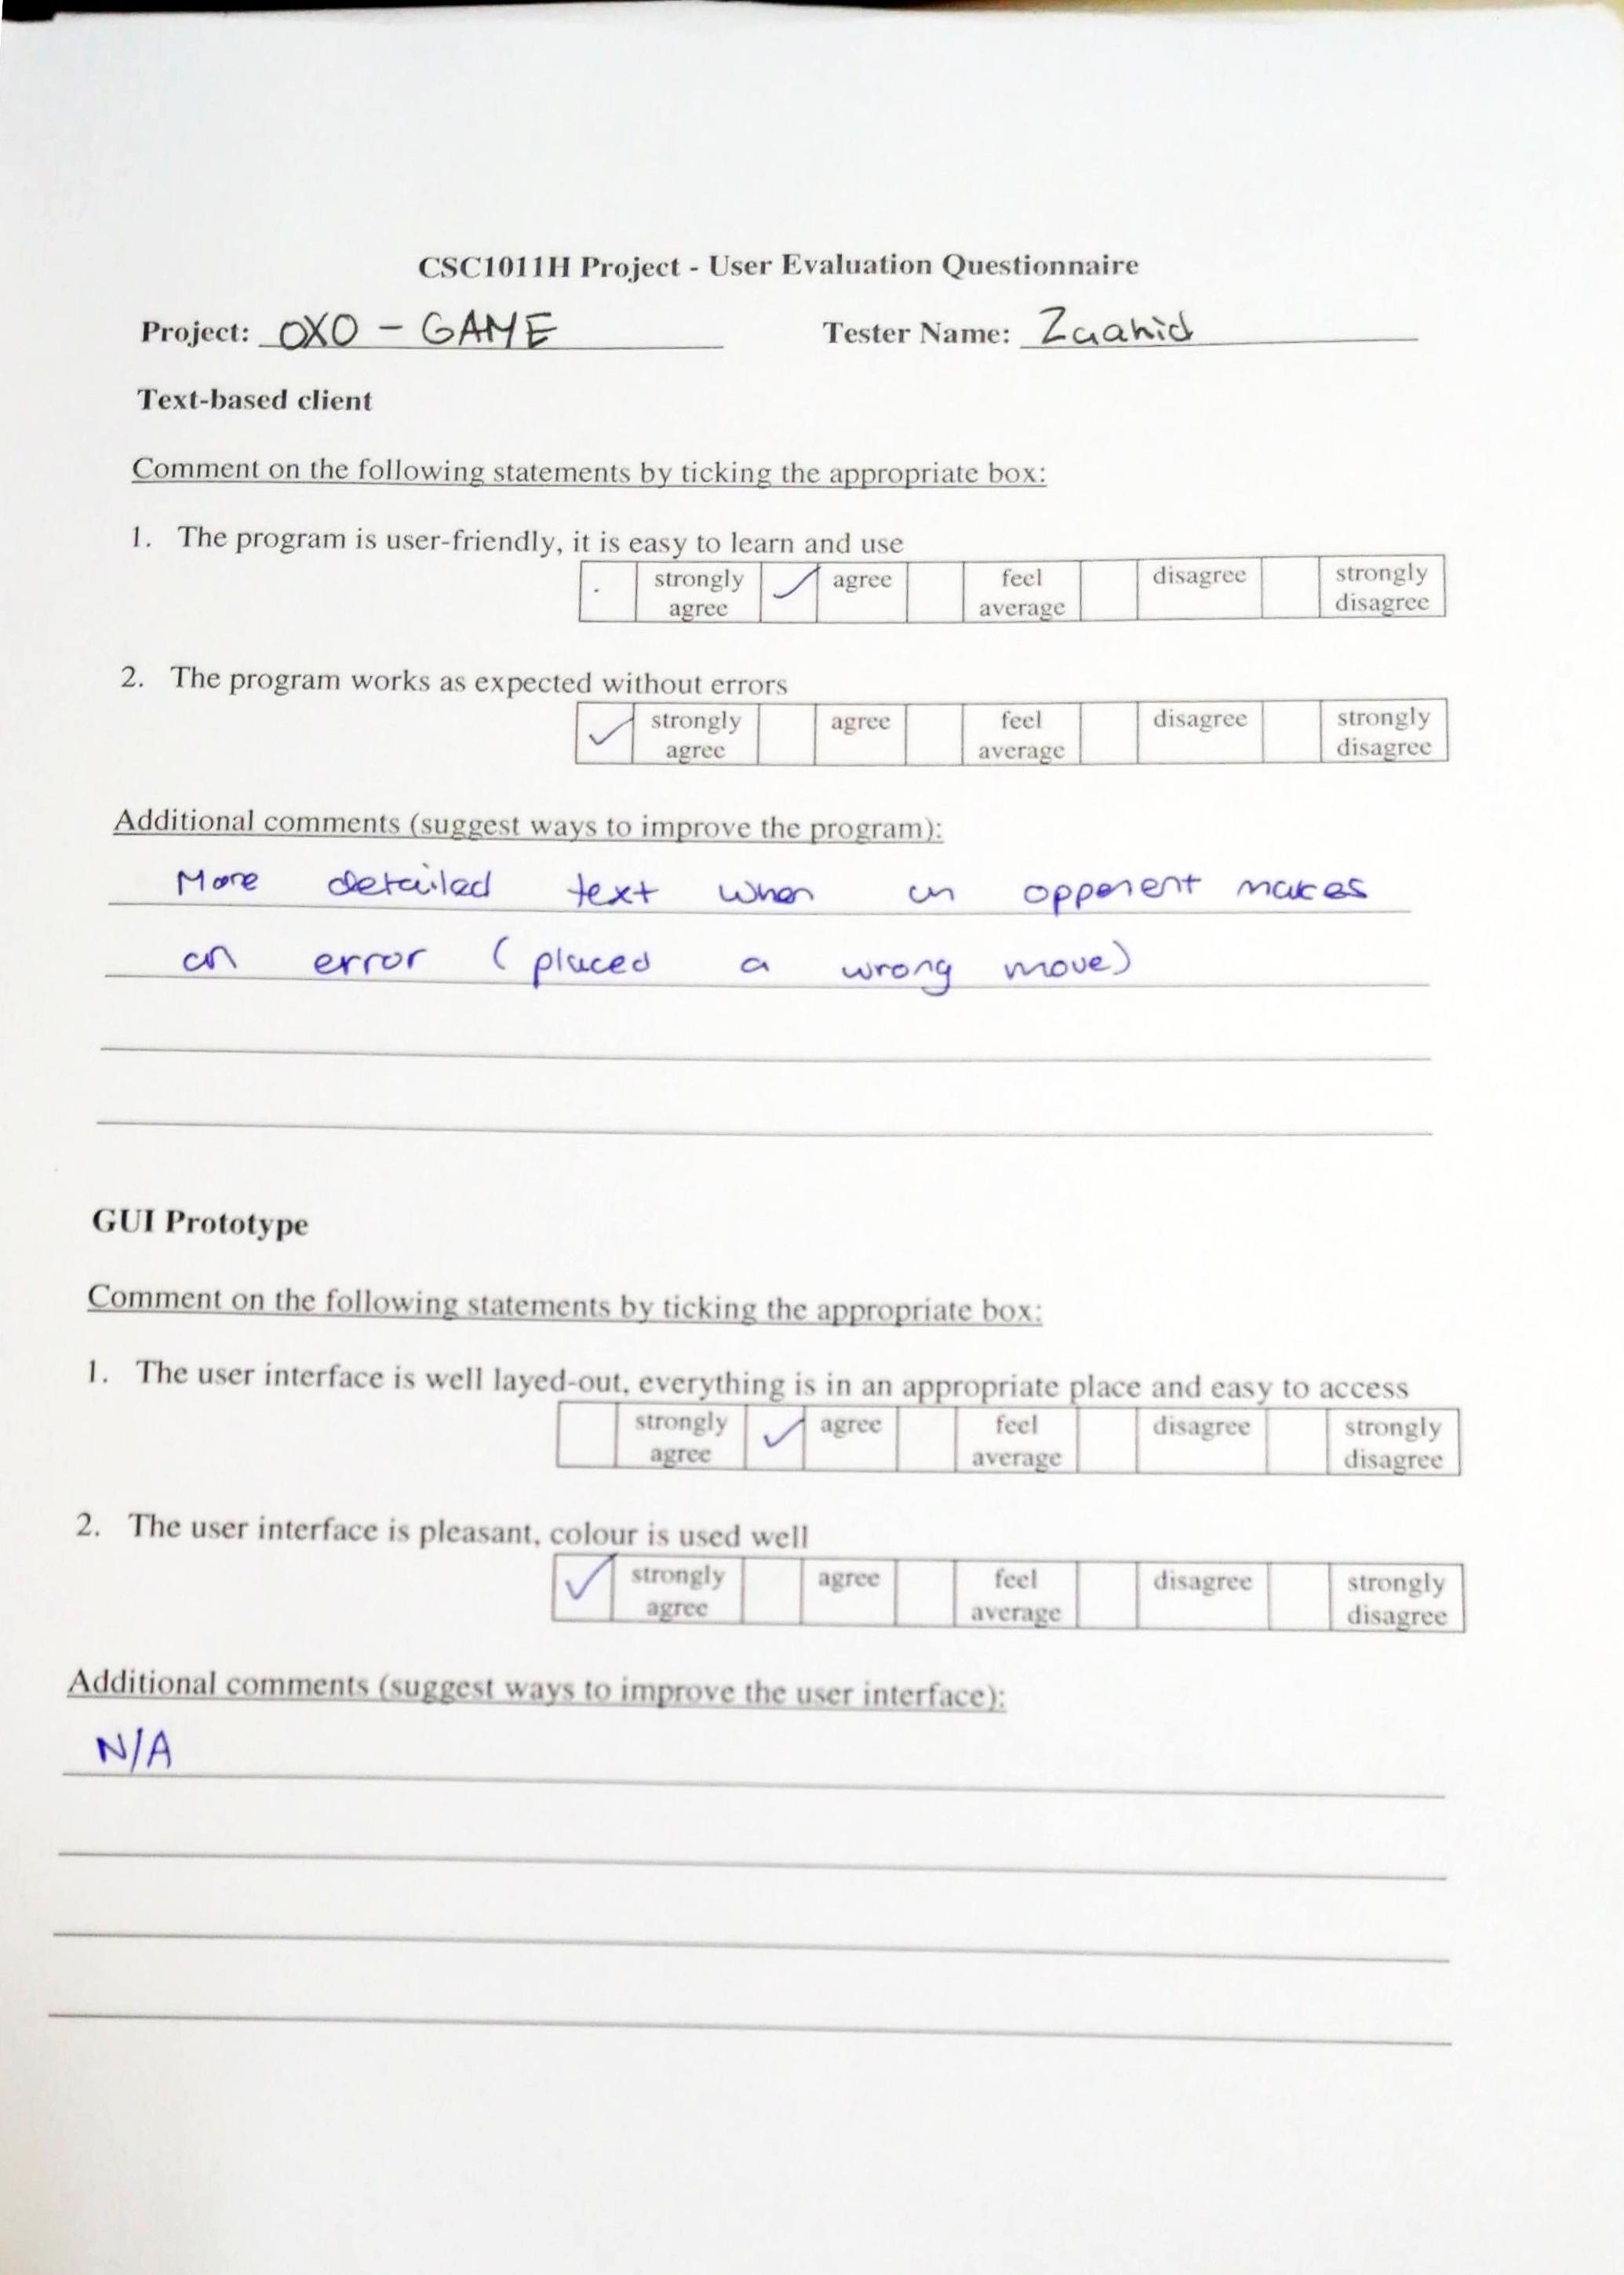 CSC1011H Project - User Evaluation Questionnaire
Project: OXO - GAME Tester Name: Zaahid
Text-based client
Comment on the following statements by ticking the appropriate box:
1. The program is user-friendly, it is easy to learn and use
strongly agree ✓ agree feel average disagree strongly disagree
2. The program works as expected without errors
✓ strongly agree agree feel average disagree strongly disagree
Additional comments (suggest ways to improve the program):
More detailed text when an opponent makes
an error (placed a wrong move)
GUI Prototype
Comment on the following statements by ticking the appropriate box:
1. The user interface is well layed-out, everything is in an appropriate place and easy to access
strongly agree ✓ agree feel average disagree strongly disagree
2. The user interface is pleasant, colour is used well
✓ strongly agree agree feel average disagree strongly disagree
Additional comments (suggest ways to improve the user interface):
N/A